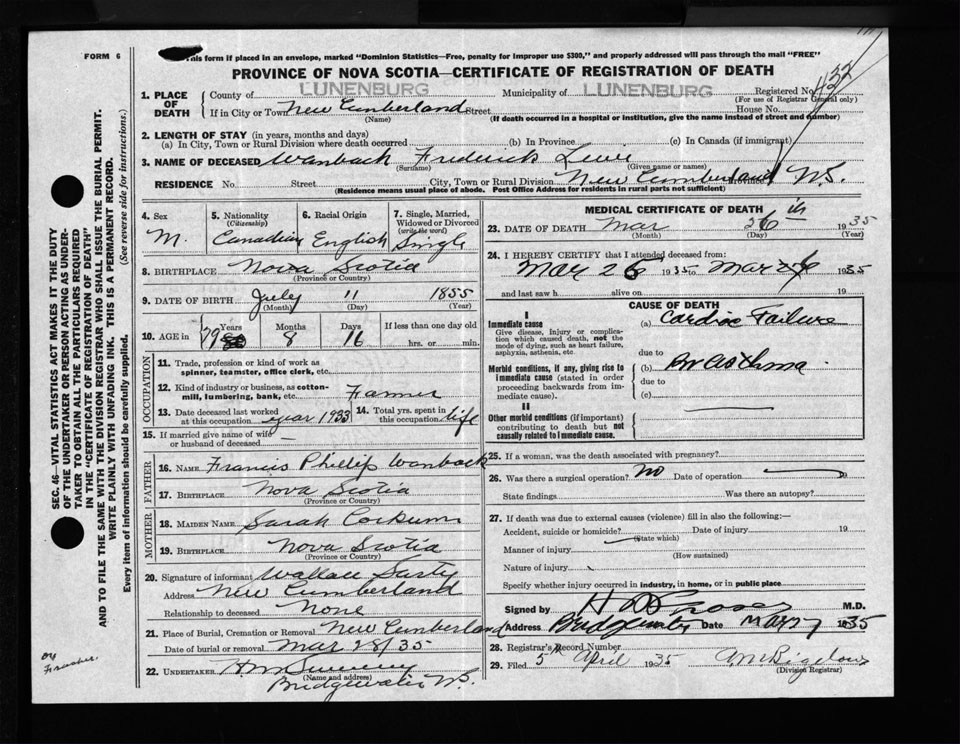 FORM 6
This form if placed in an envelope, marked "Dominion Statistics—Free, penalty for improper use $300," and properly addressed will pass through the mail "FREE"
PROVINCE OF NOVA SCOTIA—CERTIFICATE OF REGISTRATION OF DEATH
432
1. PLACE OF DEATH
County of LUNENBURG Municipality of LUNENBURG Registered No.
(For use of Registrar General only)
If in City or Town New Cumberland Street House No.
(Name) (If death occurred in a hospital or institution, give the name instead of street and number)
2. LENGTH OF STAY (in years, months and days)
(a) In City, Town or Rural Division where death occurred (b) In Province (c) In Canada (if immigrant)
3. NAME OF DECEASED Wanback Frederick Lewie
(Surname) (Given name or names)
RESIDENCE No. Street City, Town or Rural Division New Cumberland Province N.S.
(Residence means usual place of abode. Post Office Address for residents in rural parts not sufficient)
4. Sex
M.
5. Nationality
(Citizenship)
Canadian
6. Racial Origin
English
7. Single, Married, Widowed or Divorced
(write the word)
Single
8. BIRTHPLACE Nova Scotia
(Province or Country)
9. DATE OF BIRTH July 11 1855
(Month) (Day) (Year)
10. AGE in Years Months Days If less than one day old
79 8 16 hrs. or min.
OCCUPATION
11. Trade, profession or kind of work as spinner, teamster, office clerk, etc.
12. Kind of industry or business, as cotton-mill, lumbering, bank, etc. Farmer
13. Date deceased last worked at this occupation year 1933
14. Total yrs. spent in this occupation life
15. If married give name of wife or husband of deceased —
FATHER
16. NAME Francis Phillip Wanback
17. BIRTHPLACE Nova Scotia
(Province or Country)
MOTHER
18. MAIDEN NAME Sarah Corkum
19. BIRTHPLACE Nova Scotia
(Province or Country)
20. Signature of informant Wallace Sarty
Address New Cumberland
Relationship to deceased None
21. Place of Burial, Cremation or Removal New Cumberland
Date of burial or removal Mar 28/35
22. UNDERTAKER
(Name and address)
Bridgewater N.S.
MEDICAL CERTIFICATE OF DEATH
23. DATE OF DEATH Mar 26 th 1935
(Month) (Day) (Year)
24. I HEREBY CERTIFY that I attended deceased from:
Mar 26 1935 to Mar 26 1935
and last saw h alive on 19
CAUSE OF DEATH
I
Immediate cause
Give disease, injury or complication which caused death, not the mode of dying, such as heart failure, asphyxia, asthenia, etc
(a) Cardiac Failure
due to
Morbid conditions, if any, giving rise to immediate cause (stated in order proceeding backwards from immediate cause).
(b) Br Asthma
due to
(c)
II
Other morbid conditions (if important) contributing to death but not causally related to immediate cause.
25. If a woman, was the death associated with pregnancy?
26. Was there a surgical operation? No Date of operation 19
State findings Was there an autopsy?
27. If death was due to external causes (violence) fill in also the following:—
Accident, suicide or homicide? Date of injury 19
(State which)
Manner of injury
(How sustained)
Nature of injury
Specify whether injury occurred in industry, in home, or in public place
Signed by M.D.
Address Bridgewater Date Mar 27 1935
28. Registrar's Record Number
29. Filed 5 April 1935
(Division Registrar)
SEC. 46—VITAL STATISTICS ACT MAKES IT THE DUTY
OF THE UNDERTAKER OR PERSON ACTING AS UNDER-
TAKER TO OBTAIN ALL THE PARTICULARS REQUIRED
IN THE "CERTIFICATE OF REGISTRATION OF DEATH"
AND TO FILE THE SAME WITH THE DIVISION REGISTRAR WHO SHALL ISSUE THE BURIAL PERMIT.
WRITE PLAINLY WITH UNFADING INK. THIS IS A PERMANENT RECORD.
Every item of information should be carefully supplied. (See reverse side for instructions.)